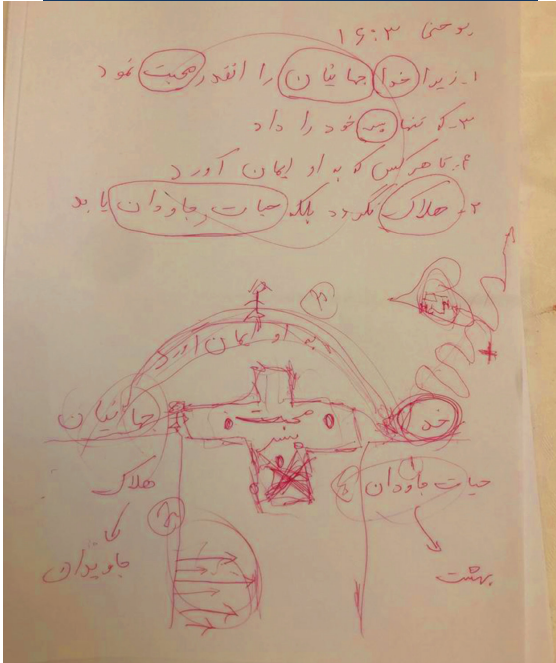 یوحنا ۱۶:۳
۱- زیرا خدا جهانیان را انقدر محبت نمود
۳- که تنها پسر خود را داد
۴- تا هر کس که به او ایمان آورد
۲- هلاک نگردد بلکه حیات جاودان یابد
به او ایمان آورد
جهانیان
محبت
خدا
پسر
هلاک
حیات جاودان
جاویدان
بهشت